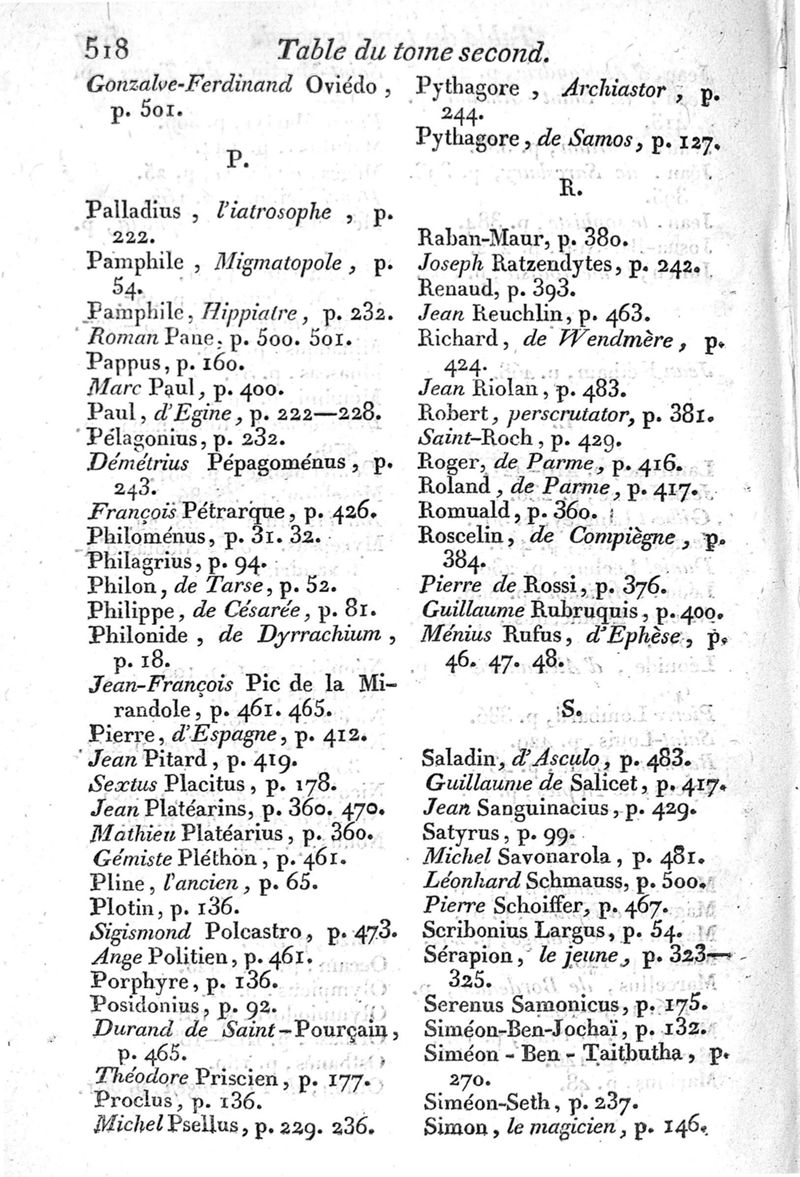 518 Table du tome second.
Gonzalve-Ferdinand Oviédo,
p. 501.
P.
Palladius, l'iatrosophe, p.
222.
Pamphile, Migmatopole, p.
54.
Pamphile, Hippiatre, p. 232.
Roman Pane, p. 500. 501.
Pappus, p. 160.
Marc Paul, p. 400.
Paul, d'Egine, p. 222—228.
Pélagonius, p. 232.
Démétrius Pépagoménus, p.
243.
François Pétrarque, p. 426.
Philoménus, p. 31. 32.
Philagrius, p. 94.
Philon, de Tarse, p. 52.
Philippe, de Césarée, p. 81.
Philonide, de Dyrrachium,
p. 18.
Jean-François Pic de la Mi-
randole, p. 461. 465.
Pierre, d'Espagne, p. 412.
Jean Pitard, p. 419.
Sextus Placitus, p. 178.
Jean Platéarins, p. 360. 470.
Mathieu Platéarius, p. 360.
Gémiste Pléthon, p. 461.
Pline, l'ancien, p. 65.
Plotin, p. 136.
Sigismond Polcastro, p. 473.
Ange Politien, p. 461.
Porphyre, p. 136.
Posidonius, p. 92.
Durand de Saint-Pourçain,
p. 465.
Théodore Priscien, p. 177.
Proclus, p. 136.
Michel Psellus, p. 229. 236.
Pythagore, Archiastor, p.
244.
Pythagore, de Samos, p. 127.
R.
Raban-Maur, p. 380.
Joseph Ratzendytes, p. 242.
Renaud, p. 393.
Jean Reuchlin, p. 463.
Richard, de Wendmère, p.
424.
Jean Riolan, p. 483.
Robert, perscrutator, p. 381.
Saint-Roch, p. 429.
Roger, de Parme, p. 416.
Roland, de Parme, p. 417.
Romuald, p. 360.
Roscelin, de Compiègne, p.
384.
Pierre de Rossi, p. 376.
Guillaume Rubruquis, p. 400.
Ménius Rufus, d'Ephèse, p.
46. 47. 48.
S.
Saladin, d'Asculo, p. 483.
Guillaume de Salicet, p. 417.
Jean Sanguinacius, p. 429.
Satyrus, p. 99.
Michel Savonarola, p. 481.
Léonhard Schmauss, p. 500.
Pierre Schoiffer, p. 467.
Scribonius Largus, p. 54.
Sérapion, le jeune, p. 323—
325.
Serenus Samonicus, p. 175.
Siméon-Ben-Jochaï, p. 132.
Siméon-Ben-Taitbutha, p.
270.
Siméon-Seth, p. 237.
Simon, le magicien, p. 146.